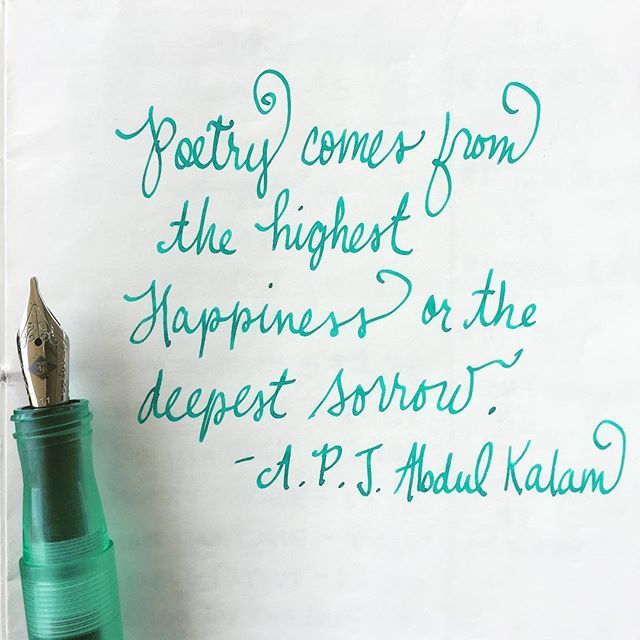 Poetry comes from
the highest
Happiness or the
deepest sorrow.
- A. P. J. Abdul Kalam